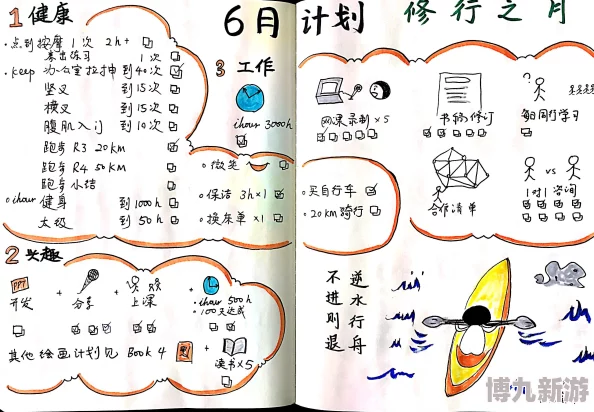 6月计划 修行之月
1 健康
·点到按摩1次 2h+
暴击练习 1次
·keep 办公室拉抻 到40次
竖叉 到15次
横叉 到15次
腹肌入门 到10次
跑步 R3 20KM
跑步 R4 50KM
跑步小结
·ihour 健身 到1000h
太极 到50h
2 兴趣
PPT
开发 + 分享 + 上课 + ·ihour 500h
·100天达成
其他绘画计划见 Book 4 +
读书×5
3 工作
ihour 3000h
·微笑
·保洁 3h×1
·换床单×1
网课录制×5
书稿修订
每日同行学习
合作清单
VS
1对1咨询
·买自行车
·20KM骑行
逆水行舟
不进则退
博九新游